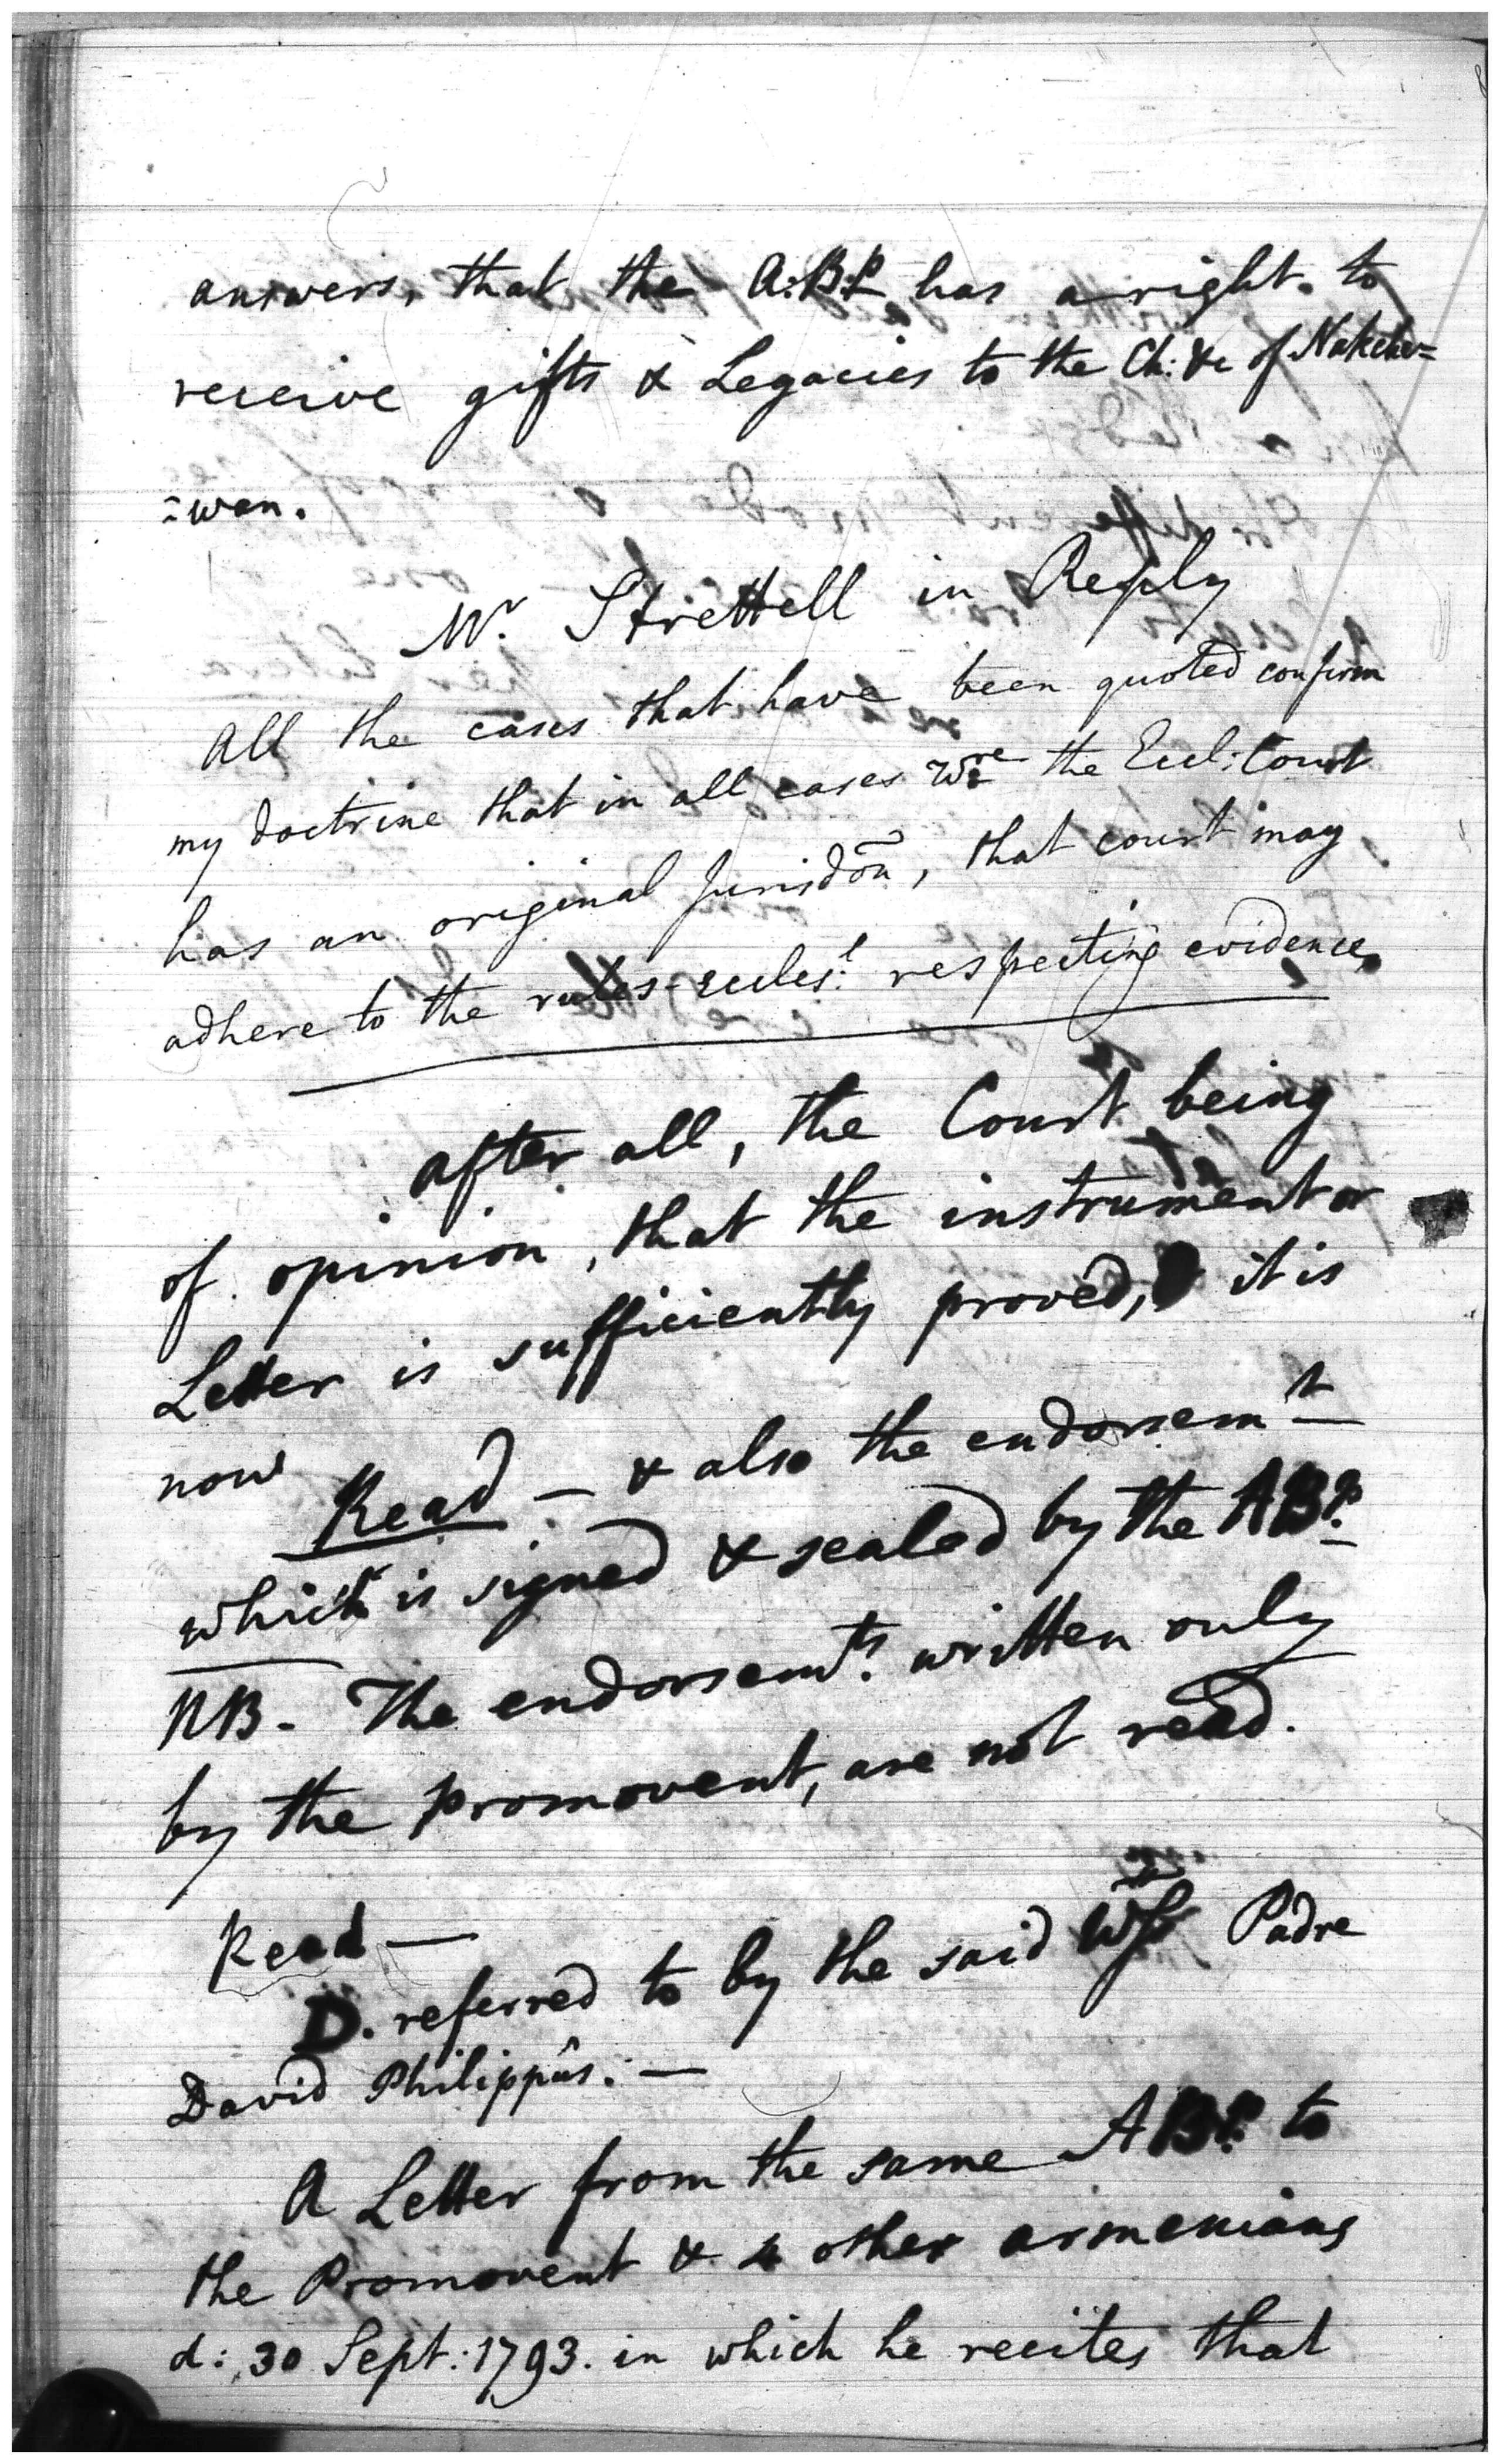 answers, that the A:B:P has a right to
receive gifts & Legacies to the Ch: &c of Nakche=
=wan.
Mr. Strettell in Reply
All the cases that have been quoted confirm
my doctrine that in all cases wre the Eccl: Court
has an original Jurisdõn, that court may
adhere to the rules eccles:l respecting evidence.
After all, the Court being
of opinion, that the instrument or
Letter is sufficiently proved, it is
now Read — & also the endorsemt
which is signed & sealed by the ABp.
NB. The endorsemts. written only
by the promovent, are not read.
Read —
D. referred to by the said Padre
David Philippûs. —
A Letter from the same ABp. to
the Promovent & 4 other armenians
d: 30 Sept: 1793. in which he recites that